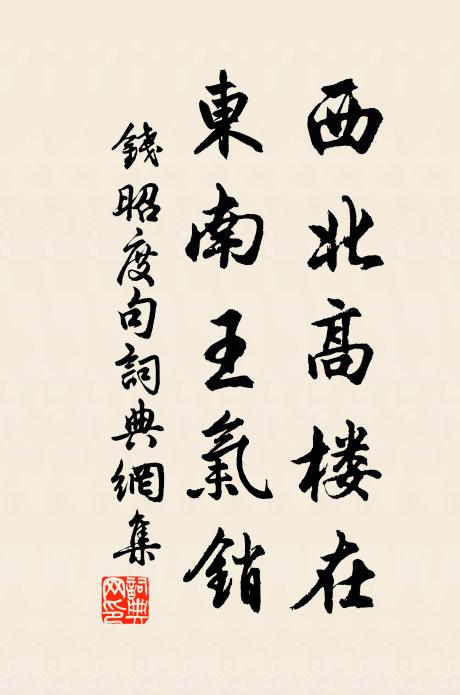 西北高楼在
東南王氣銷
錢昭度句詞典網集
詞典网印